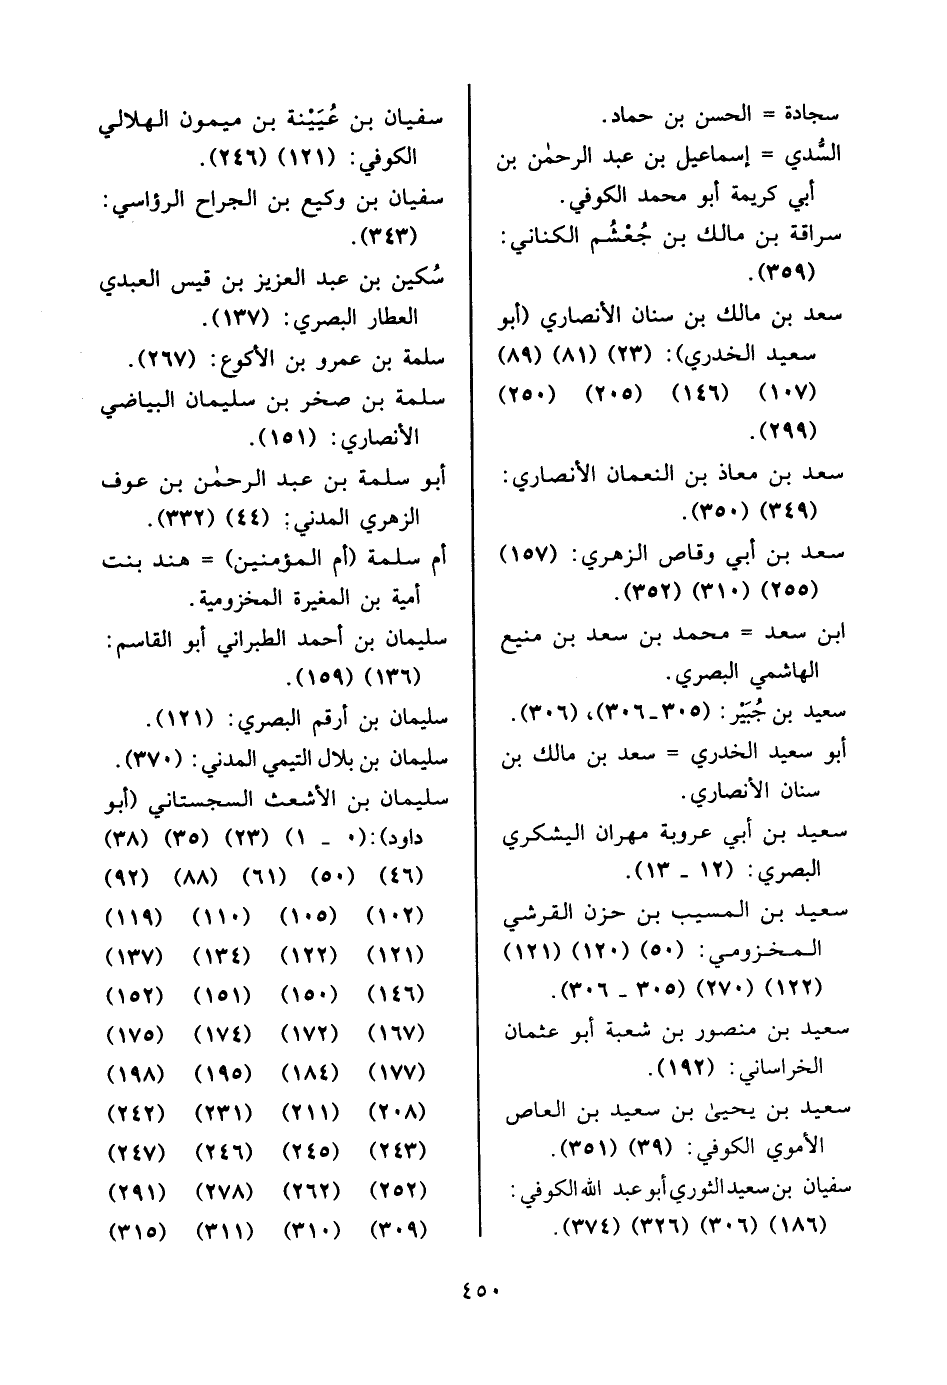 سجادة = الحسن بن حماد.
السُّدي = إسماعيل بن عبد الرحمٰن بن
أبي كريمة أبو محمد الكوفي.
سراقة بن مالك بن جُعْشُم الكناني:
(٣٥٩).
سعد بن مالك بن سنان الأنصاري (أبو
سعيد الخدري): (٢٣) (٨١) (٨٩)
(١٠٧) (١٤٦) (٢٠٥) (٢٥٠)
(٢٩٩).
سعد بن معاذ بن النعمان الأنصاري:
(٣٤٩) (٣٥٠).
سعد بن أبي وقاص الزهري: (١٥٧)
(٢٥٥) (٣١٠) (٣٥٢).
ابن سعد = محمد بن سعد بن منيع
الهاشمي البصري.
سعيد بن جُبَيْر: (٣٠٥-٣٠٦)، (٣٠٦).
أبو سعيد الخدري = سعد بن مالك بن
سنان الأنصاري.
سعيد بن أبي عروبة مهران اليشكري
البصري: (١٢ - ١٣).
سعيد بن المسيب بن حزن القرشي
المخزومي: (٥٠) (١٢٠) (١٢١)
(١٢٢) (٢٧٠) (٣٠٥ - ٣٠٦).
سعيد بن منصور بن شعبة أبو عثمان
الخراساني: (١٩٢).
سعيد بن يحيىٰ بن سعيد بن العاص
الأموي الكوفي: (٣٩) (٣٥١).
سفيان بن سعيد الثوري أبو عبد الله الكوفي:
(١٨٦) (٣٠٦) (٣٢٦) (٣٧٤).
سفيان بن عُيَيْنة بن ميمون الهلالي
الكوفي: (١٢١) (٢٤٦).
سفيان بن وكيع بن الجراح الرؤاسي:
(٣٤٣).
سُكين بن عبد العزيز بن قيس العبدي
العطار البصري: (١٣٧).
سلمة بن عمرو بن الأكوع: (٢٦٧).
سلمة بن صخر بن سليمان البياضي
الأنصاري: (١٥١).
أبو سلمة بن عبد الرحمٰن بن عوف
الزهري المدني: (٤٤) (٣٣٢).
أم سلمة (أم المؤمنين) = هند بنت
أمية بن المغيرة المخزومية.
سليمان بن أحمد الطبراني أبو القاسم:
(١٣٦) (١٥٩).
سليمان بن أرقم البصري: (١٢١).
سليمان بن بلال التيمي المدني: (٣٧٠).
سليمان بن الأشعث السجستاني (أبو
داود): (٠ - ١) (٢٣) (٣٥) (٣٨)
(٤٦) (٥٠) (٦١) (٨٨) (٩٢)
(١٠٢) (١٠٥) (١١٠) (١١٩)
(١٢١) (١٢٢) (١٣٤) (١٣٧)
(١٤٦) (١٥٠) (١٥١) (١٥٢)
(١٦٧) (١٧٢) (١٧٤) (١٧٥)
(١٧٧) (١٨٤) (١٩٥) (١٩٨)
(٢٠٨) (٢١١) (٢٣١) (٢٤٢)
(٢٤٣) (٢٤٥) (٢٤٦) (٢٤٧)
(٢٥٢) (٢٦٢) (٢٧٨) (٢٩١)
(٣٠٩) (٣١٠) (٣١١) (٣١٥)
٤٥٠